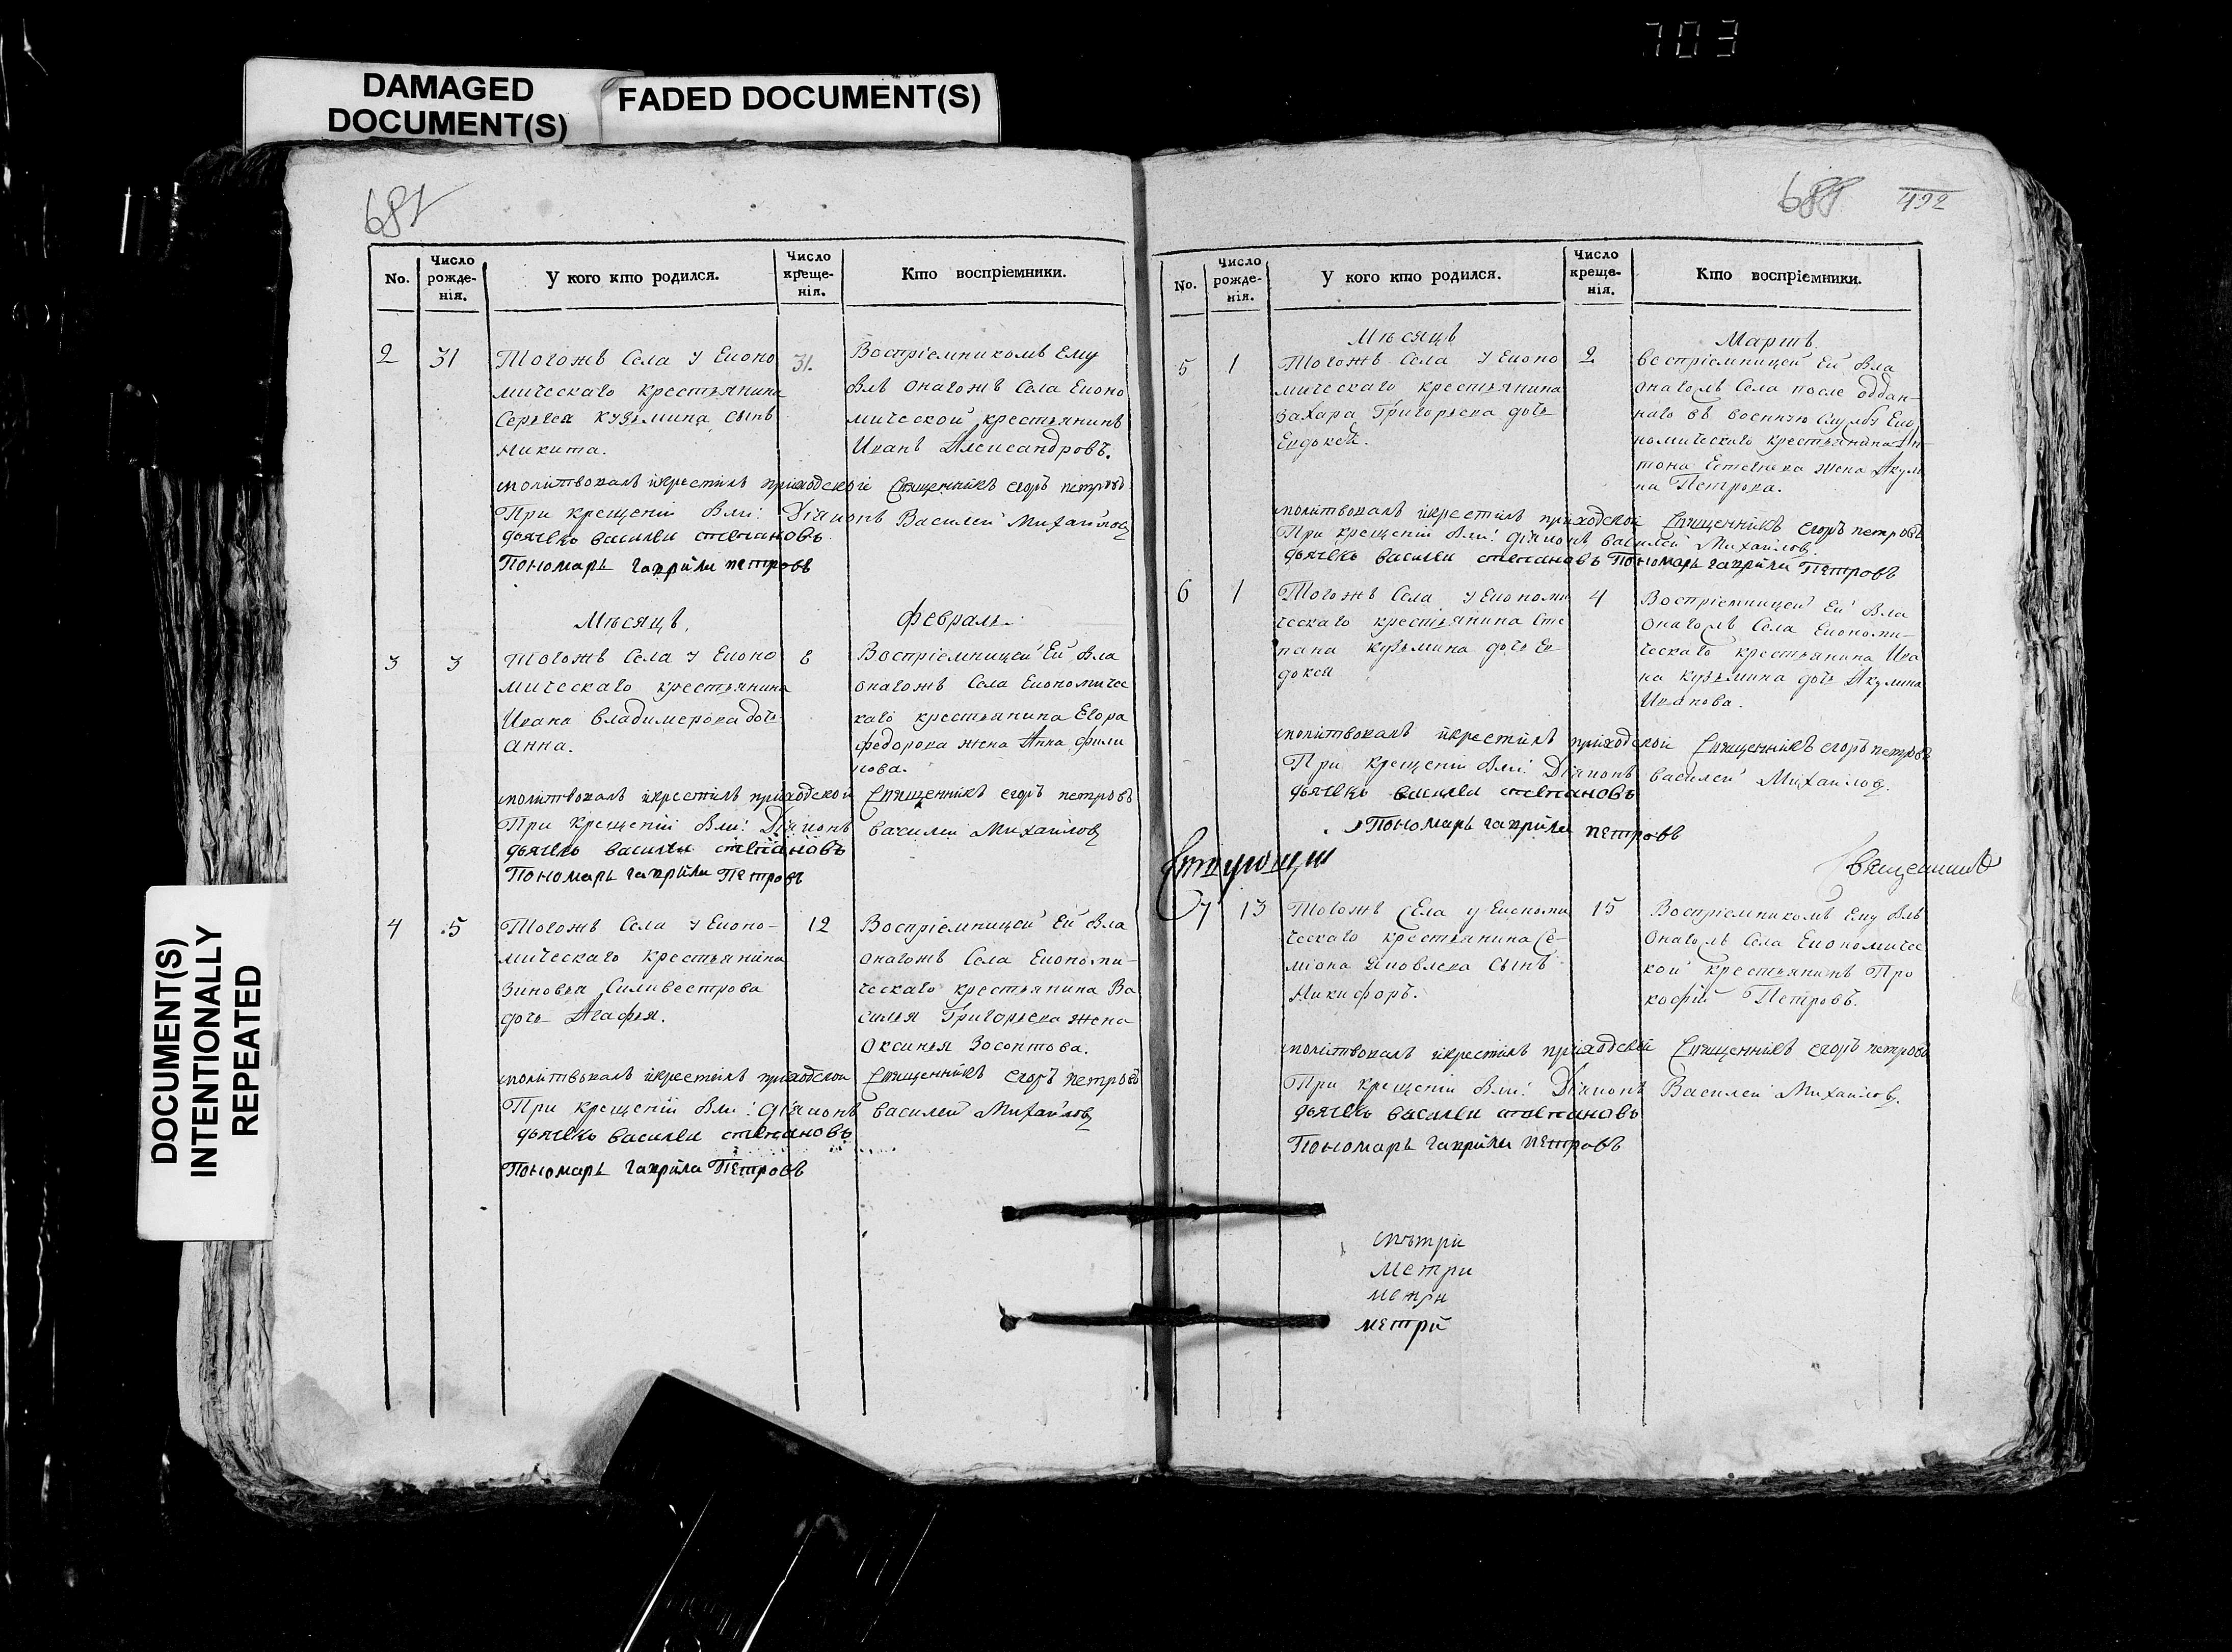 703
DAMAGED
DOCUMENT(S)
FADED DOCUMENT(S)
DOCUMENT(S)
INTENTIONALLY
REPEATED
No.
Число
рожде-
нія.
У кого кто родился.
Число
креще-
нія.
Кто воспріемники.
2
31
Тогожъ Села у Еконо
мическаго крестьянина
Сергѣя Кузьмина сынъ
Никита.
31.
Воспріемникомъ Ему
былъ онагожъ Села Еконо
мической крестьянинъ
Иванъ Александровъ.
молитвовалъ и крестилъ приходскоі Священникъ егоръ петровъ
При крещеніи были: Діяконъ Василей Михайловъ
дьячекъ василеи степановъ
Пономарь гаврила петровъ
Мѣсяцъ,
февраль.
3
3
Тогожъ Села у Еконо
мическаго крестьянина
Ивана Владимерова дочь
анна.
8
Воспріемницей Ей была
онагожъ Села Економичес
каго крестьянина Егора
федорова жена Анна фили
пова.
молитвовалъ и крестилъ приходской Священникъ егоръ петровъ
При крещеніи были: Діяконъ василей Михайловъ
дьячекъ василеи степановъ
Пономарь гаврила Петровъ
4
5
Тогожъ Села у Еконо-
мическаго крестьянина
Зиновья Силивестрова
дочь Агафья.
12
Воспріемницей Ей была
онагожъ Села Економи-
ческаго крестьянина Ва
силья Григорьева жена
Оксинья
молитвовалъ и крестилъ приходской Священникъ егоръ петровъ
При крещеніи были: діяконъ василей Михайловъ
дьячекъ василеи степановъ
Пономарь гаврила Петровъ
688
492
No.
Число
рожде-
нія.
У кого кто родился.
Число
креще-
нія.
Кто воспріемники.
Мѣсяцъ
Мартъ.
5
1
Тогожъ Села у Еконо
мическаго крестьянина
Захара Григорьева дочь
Евдокея.
2
воспріемницей Ей была
онагожъ Села после оддан-
наго въ военную Службу Еко
номическаго крестьянина Ан-
тона жена Акули
на Петрова.
молитвовалъ и крестилъ приходской Священникъ егоръ петровъ
При крещеніи были: діяконъ василей Михайловъ
дьячекъ василеи степановъ Пономарь гаврила Петровъ
6
1
Тогожъ Села у Економи
ческаго крестьянина Сте
пана Кузьмина дочь Ев
докея
4
Воспріемницей Ей была
онагожъ Села Економи-
ческаго крестьянина Ива
на Кузьмина дочь Акулина
Иванова.
молитвовалъ и крестилъ приходской Священникъ егоръ петровъ
При крещеніи были: Діяконъ василей Михайловъ.
дьячекъ василеи степановъ
Пономарь гаврила петровъ
Священникъ
7
13
Тогожъ Села у Економи
ческаго крестьянина Се-
міона Яковлева Сынъ
Никифоръ.
15
Воспріемникомъ Ему былъ
Онагожъ Села Економичес
кой крестьянинъ Про
кофий Петровъ.
молитвовалъ и крестилъ приходской Священникъ егоръ петровъ
При крещеніи были: Діяконъ Василей Михайловъ.
дьячекъ василеи степановъ
Пономарь гаврила петровъ
Метри
метри
метри